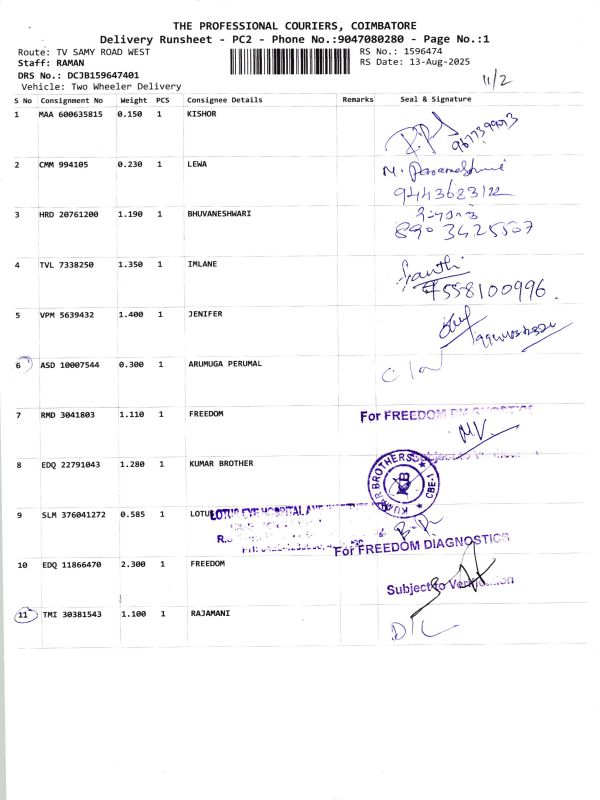 THE PROFESSIONAL COURIERS, COIMBATORE
Delivery Runsheet - PC2 - Phone No.:9047080280 - Page No.:1
Route: TV SAMY ROAD WEST RS No.: 1596474
Staff: RAMAN RS Date: 13-Aug-2025
DRS No.: DCJB159647401
Vehicle: Two Wheeler Delivery
11/2
S No Consignment No Weight PCS Consignee Details Remarks Seal & Signature
1 MAA 600635815 0.150 1 KISHOR
2 CMM 994105 0.230 1 LEWA
9443623122
3 HRD 20761200 1.190 1 BHUVANESHWARI
8903425507
4 TVL 7338250 1.350 1 IMLANE
558100996
5 VPM 5639432 1.400 1 JENIFER
6 ASD 10007544 0.300 1 ARUMUGA PERUMAL
7 RMD 3041803 1.110 1 FREEDOM For FREEDOM DIAGNOSTICS
MV.
8 EDQ 22791043 1.280 1 KUMAR BROTHER
Subject to
KUMAR BROTHERS KB CBE-1
9 SLM 376041272 0.585 1 LOTUS
LOTUS EYE HOSPITAL AND INSTITUTE
For FREEDOM DIAGNOSTICS
10 EDQ 11866470 2.300 1 FREEDOM
Subject to Verification
11 TMI 30381543 1.100 1 RAJAMANI
D/L